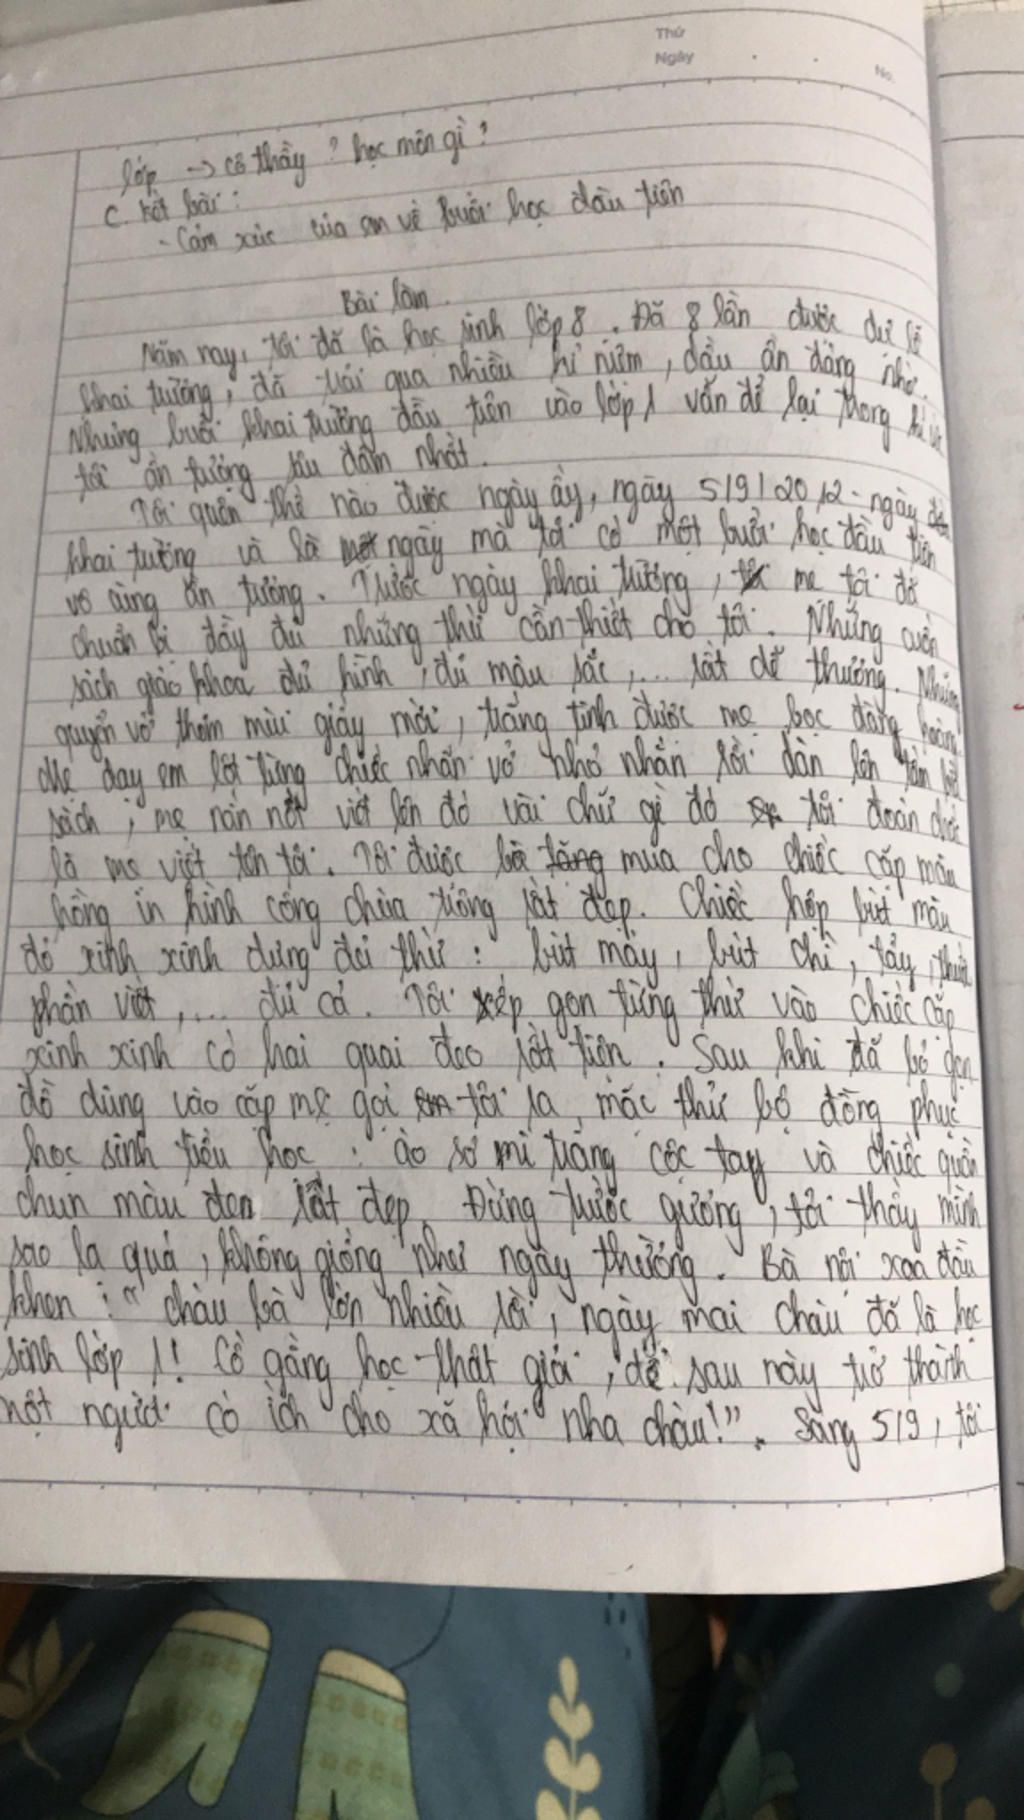 Thứ
Ngày
No.
lớp → cô thầy? học môn gì?
C. kết bài:
- Cảm xúc của em về buổi học đầu tiên
Bài làm.
Năm nay, tôi đã là học sinh lớp 8. Đã 8 lần được dự lễ
khai trường, đã trải qua nhiều kỉ niệm, dấu ấn đáng nhớ.
Nhưng buổi khai trường đầu tiên vào lớp 1 vẫn để lại trong kí ức
tôi ấn tượng sâu đậm nhất.
Tôi quên thế nào được ngày ấy, ngày 5/9/2012 - ngày
khai trường và là ngày mà tôi có một buổi học đầu tiên
vô cùng ấn tượng. Trước ngày khai trường, mẹ tôi đã
chuẩn bị đầy đủ những thứ cần thiết cho tôi. Những cuốn
sách giáo khoa đủ hình, đủ màu sắc,... rất dễ thương. Những
quyển vở thơm mùi giấy mới, trắng tinh được mẹ bọc đàng hoàng.
Mẹ dạy em lột từng chiếc nhãn vở nhỏ nhắn rồi dán lên tấm bìa
sách, mẹ nắn nót viết lên đó vài chữ gì đó tôi đoán được
là mẹ viết tên tôi. Tôi được bà tặng mua cho chiếc cặp màu
hồng in hình công chúa trông rất đẹp. Chiếc hộp bút màu
đỏ xinh xinh đựng đủ thứ: bút máy, bút chì, tẩy, thước
phấn viết,... đủ cả. Tôi xếp gọn từng thứ vào chiếc cặp
xinh xinh có hai quai đeo rất tiện. Sau khi đã bỏ gọn
đồ dùng vào cặp mẹ gọi tôi ra, mặc thử bộ đồng phục
học sinh tiểu học: áo sơ mi trắng cộc tay và chiếc quần
chun màu đen rất đẹp. Đứng trước gương, tôi thấy mình
sao lạ quá, không giống như ngày thường. Bà nội xoa đầu
khen: "cháu bà lớn nhiều rồi, ngày mai cháu đã là học
sinh lớp 1! Cố gắng học thật giỏi, để sau này trở thành
một người có ích cho xã hội nha cháu!". Sáng 5/9, tôi